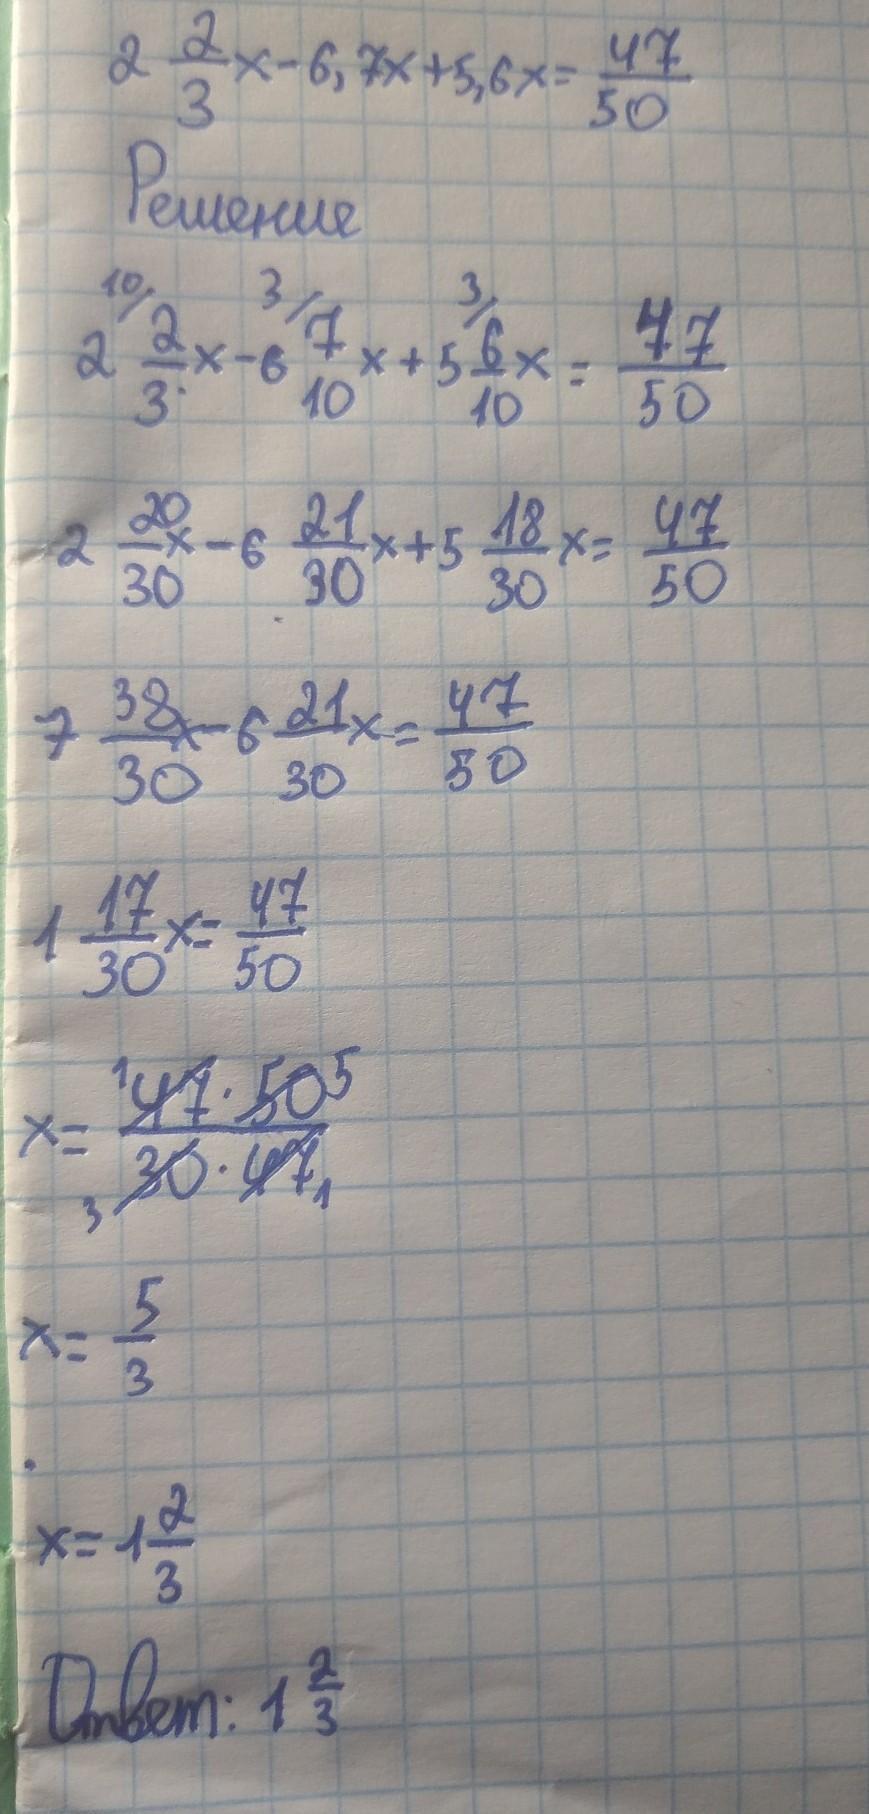 2 2/3 x - 6,7x + 5,6x = 47/50
Решение
2 10/ 2/3 x - 6 3/ 7/10 x + 5 3/ 6/10 x = 47/50
2 20/30 x - 6 21/30 x + 5 18/30 x = 47/50
7 38/30 x - 6 21/30 x = 47/50
1 17/30 x = 47/50
x = 1 47 · 50 5 / 3 30 · 47 1
x = 5/3
x = 1 2/3
Ответ: 1 2/3